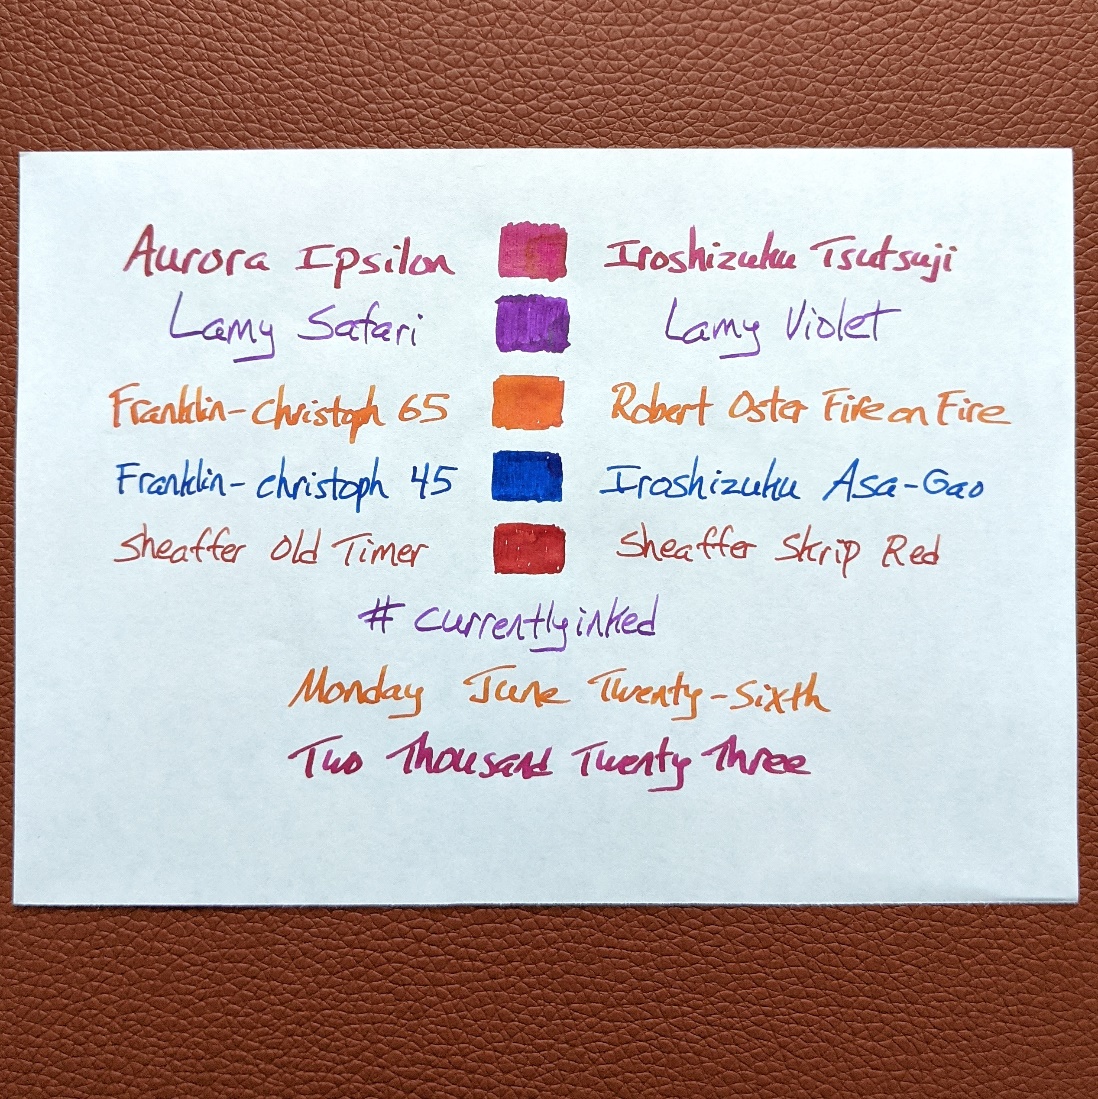 Aurora Ipsilon Iroshizuku Tsutsuji
Lamy Safari Lamy Violet
Franklin-Christoph 65 Robert Oster Fire on Fire
Franklin-Christoph 45 Iroshizuku Asa-Gao
Sheaffer Old Timer Sheaffer Skrip Red
# currentlyinked
Monday June Twenty-Sixth
Two Thousand Twenty Three